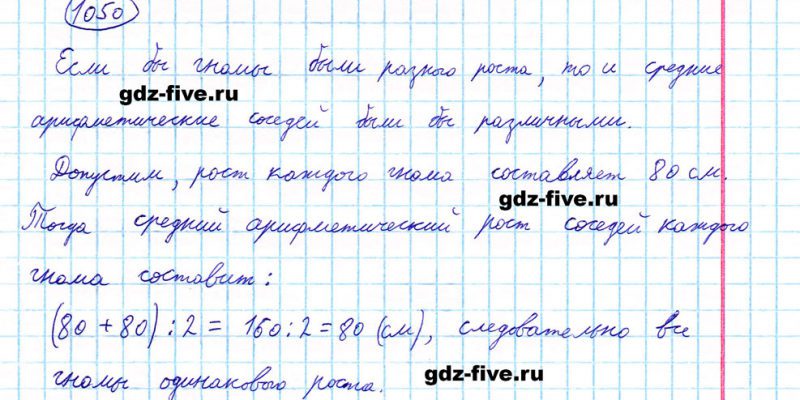 1050
Если бы гномы были разного роста, то и средние
gdz-five.ru
арифметические соседей были бы различными.
Допустим, рост каждого гнома составляет 80 см.
gdz-five.ru
Тогда средний арифметический рост соседей каждого
гнома составит:
(80 + 80) : 2 = 160 : 2 = 80 (см), следовательно все
гномы одинакового роста.
gdz-five.ru